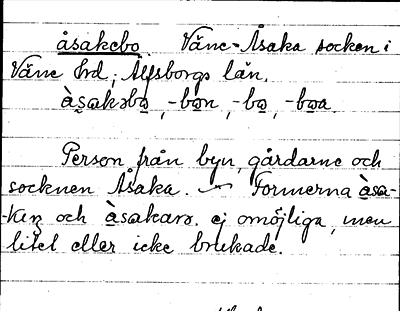 åsakebo Väne-Åsaka socken i
Väne hrd, Älfsborgs län.
àsakəbo, -bon, -bo, -boa.
Person från byn, gårdarne och
socknen Åsaka. — Formerna àsa-
-kɩŋ och àsakarə. ej omöjliga, men
litet eller icke brukade.